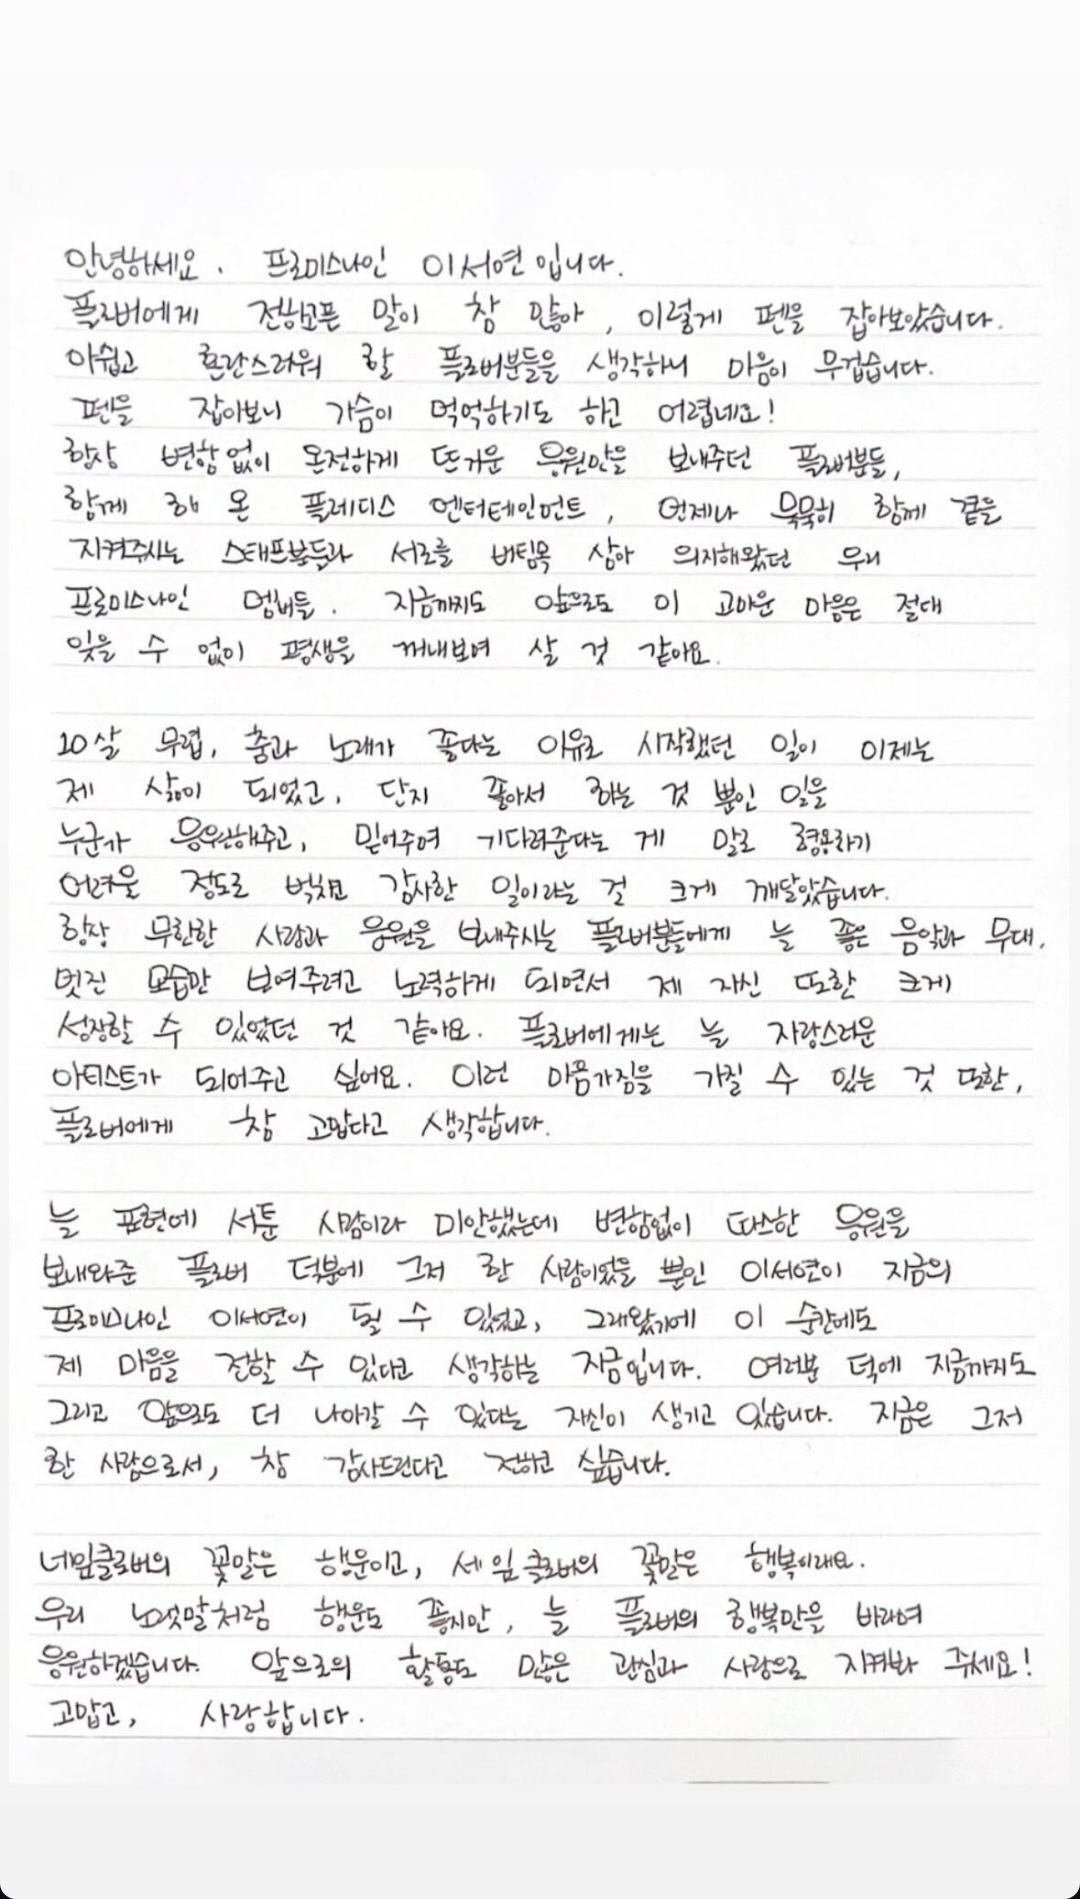 안녕하세요. 프로미스나인 이서연입니다.
플로버에게 전하고픈 말이 참 많아, 이렇게 펜을 잡아보았습니다.
아쉽고 혼란스러워 할 플로버분들을 생각하니 마음이 무겁습니다.
펜을 잡아보니 가슴이 먹먹하기도 하고 어렵네요!
항상 변함없이 온전하게 뜨거운 응원만을 보내주던 플로버분들,
함께 해 온 플레디스 엔터테인먼트, 언제나 묵묵히 함께 곁을
지켜주시는 스태프분들과 서로를 버팀목 삼아 의지해왔던 우리
프로미스나인 멤버들. 지금까지도 앞으로도 이 고마운 마음은 절대
잊을 수 없이 평생을 꺼내보며 살 것 같아요.
10살 무렵, 춤과 노래가 좋다는 이유로 시작했던 일이 이제는
제 삶이 되었고, 단지 좋아서 하는 것 뿐인 일을
누군가 응원해주고, 믿어주며 기다려준다는 게 말로 형용하기
어려울 정도로 벅차고 감사한 일이라는 걸 크게 깨달았습니다.
항상 무한한 사랑과 응원을 보내주시는 플로버분들에게 늘 좋은 음악과 무대,
멋진 모습만 보여주려고 노력하게 되면서 제 자신 또한 크게
성장할 수 있었던 것 같아요. 플로버에게는 늘 자랑스러운
아티스트가 되어주고 싶어요. 이런 마음가짐을 가질 수 있는 것 또한,
플로버에게 참 고맙다고 생각합니다.
늘 표현에 서툰 사람이라 미안했는데 변함없이 따스한 응원을
보내와준 플로버 덕분에 그저 한 사람이었을 뿐인 이서연이 지금의
프로미스나인 이서연이 될 수 있었고, 그래왔기에 이 순간에도
제 마음을 전할 수 있다고 생각하는 지금입니다. 여러분 덕에 지금까지도
그리고 앞으로도 더 나아갈 수 있다는 자신이 생기고 있습니다. 지금은 그저
한 사람으로서, 참 감사드린다고 전하고 싶습니다.
네잎클로버의 꽃말은 행운이고, 세잎클로버의 꽃말은 행복이래요.
우리 노랫말처럼 행운도 좋지만, 늘 플로버의 행복만을 바라며
응원하겠습니다. 앞으로의 활동도 많은 관심과 사랑으로 지켜봐 주세요!
고맙고, 사랑합니다.